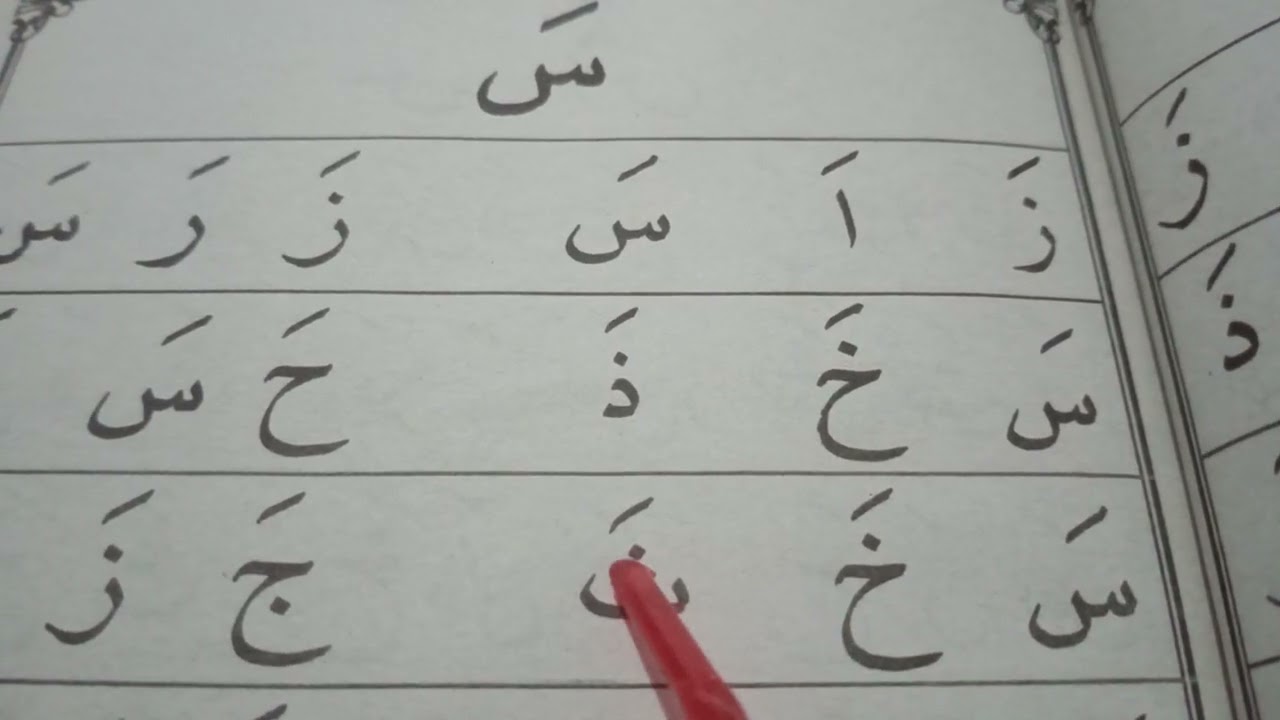 سَ
زَ اَ سَ زَ رَ سَ
سَ خَ ذَ حَ سَ
سَ خَ ثَ جَ زَ
زَ
ذَ